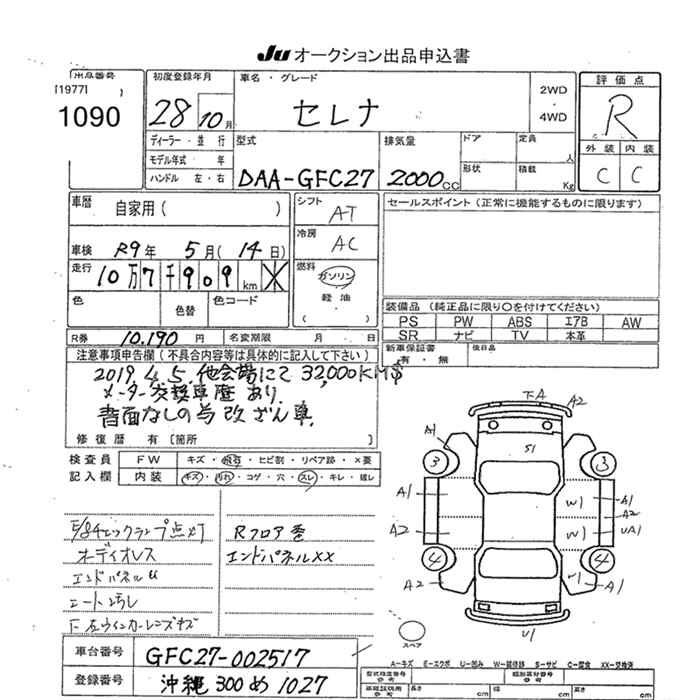 JU オークション出品申込書
出品番号
[1977]
1090
初度登録年月
28 10月
車名・グレード
セレナ
2WD
4WD
評価点
R
外装 内装
C C
ディーラー・並行
モデル年式 年
ハンドル 左・右
型式
DAA-GFC27
排気量
2000cc
ドア
形状
定員 人
積載 Kg
車歴 自家用( )
車検 R9年 5月(14日)
走行 10万7千909km
色
色替
色コード
シフト AT
冷房 AC
燃料 ガソリン
軽油
( )
セールスポイント(正常に機能するものに限ります)
装備品(純正品に限り○を付けてください)
PS PW ABS エアB AW
SR ナビ TV 本革
新車保証書 有・無
後日品
R券 10.190円 名変期限 月 日
注意事項申告欄(不具合内容等は具体的に記入して下さい)
2019.4.5.他会場にて32,000KM時
メーター交換車歴あり.
書面なしの為改ざん車.
修復歴 有[箇所 ]
検査員 FW キズ・飛石・ヒビ割・リペア跡・X要
記入欄 内装 キズ・汚れ・コゲ・穴・スレ・キレ・破レ
E/gチェックランプ点灯
オーディオレス
エンドパネルU
シート汚れ
F左ウィンカーレンズキズ
Rフロア歪
エンドパネルXX
FA
A2
A1
S1
3
3
A1
W1
A1
A2
A2
W1
UA1
4
4
A2
U1
A1
U1
スペア
A-キズ E-エクボ U-凹み W-補修跡 S-サビ C-腐食 XX-交換済
車台番号 GFC27-002517
登録番号 沖縄 300 め 1027
型式指定番号
類別区分番号
長さ cm
幅 cm
高さ cm